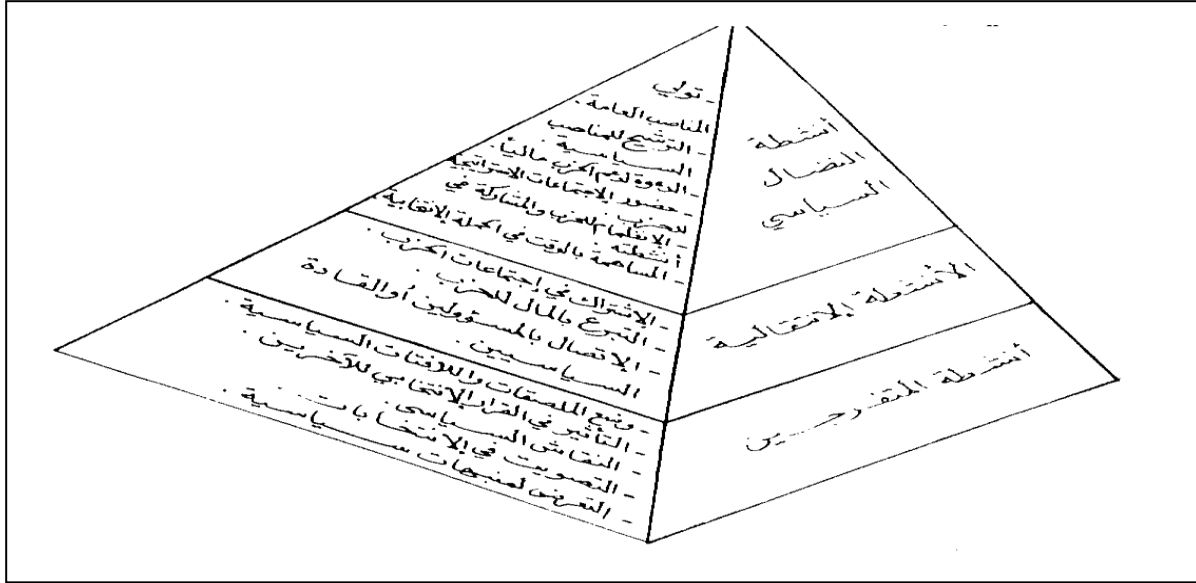 - تولي
المناصب العامة .
- الترشيح للمناصب
السياسية .
- الدعوة لدعم الحزب مالياً .
- حضور الإجتماعات الاستراتيجية
للحزب .
- الإنظمام للحزب والمشاركة في
أنشطته .
- المساهمة بالوقت في الحملة الإنتخابية
- الإشتراك في إجتماعات الحزب .
- التبرع بالمال للحزب .
- الإتصال بالمسؤولين أو القادة
السياسيين .
- وضع الملصقات واللافتات السياسية .
- التأثير في القرار الإنتخابي للآخرين .
- النقاش السياسي .
- التصويت في الإنتخابات .
- التعرض لمنبهات سياسية .
أنشطة
النضال
السياسي
الأنشطة الإنتقالية
أنشطة المتفرجين